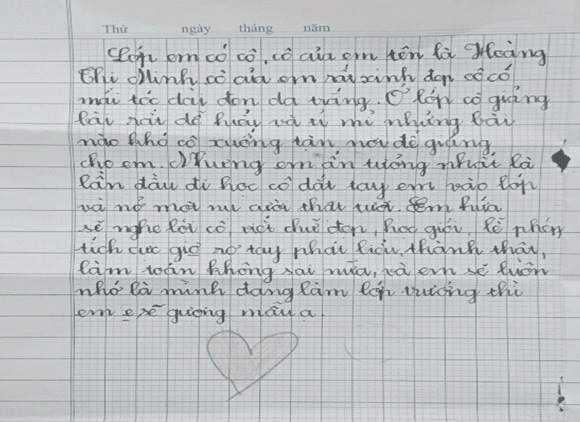 Thứ ngày tháng năm
Lớp em có cô, cô của em tên là Hoàng
Thi Minh cô của em rất xinh đẹp cô có
mái tóc dài đen da trắng. Ở lớp cô giảng
bài rất dể huểy và tỉ mỉ những bài
nào khó cô xuống tận nơi để giảng
cho em. Nhưng em ấn tượng nhất là
lần đầu đi học cô dắt tay em vào lớp
và nở một nụ cười thật tươi. Em hứa
sẽ nghe lời cô, viết chuẽ đẹp, học giỏi, lể phép,
tích cực giơ rơ tay phát biểu, thành thật,
làm toán không sai nữa, và em sẽ luôn
nhớ là mình đang làm lớp trưởng thì
em e sẽ gương mẫu ạ.